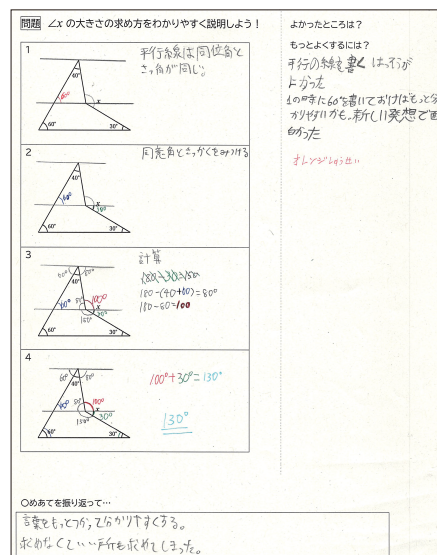 問題 ∠xの大きさの求め方をわかりやすく説明しよう！
1
平行線は同位角と
さっ角が同じ。
40°
60°
x
60°
30°
2
同意角とさっかくをみつける
40°
60°
x
30°
60°
30°
3
計算
180-30=150
180-(40+60)=80°
180-80=100
60° 80°
40°
60° 80° 100°
x
30°
150°
60°
30°
4
100°+30°=130°
130°
60° 80°
40°
60° 80° 100°
x
30°
150°
60°
30°
よかったところは？
もっとよくするには？
平行の線を書く はっそうが
よかった
1の時に60°を書いておけばもっと分
かりやすいかも。新しい発想で面
白かった
オレンジしゅうせい
○めあてを振り返って…
言葉をもっとつかって分かりやすくする。
求めなくていい所も求めてしまった。